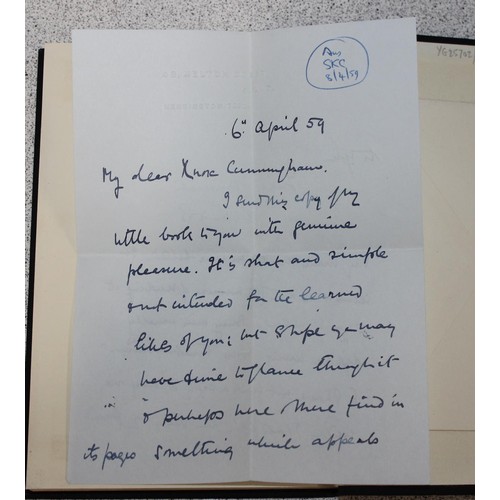 Ans
SKC
8/4/59
6th April 59
My dear Knox Cunningham.
I send this copy of my
little book to you with genuine
pleasure. It is short and simple
not intended for the learned
likes of you; but I hope you may
have time to glance through it
& perhaps here & there find in
its pages something which appeals